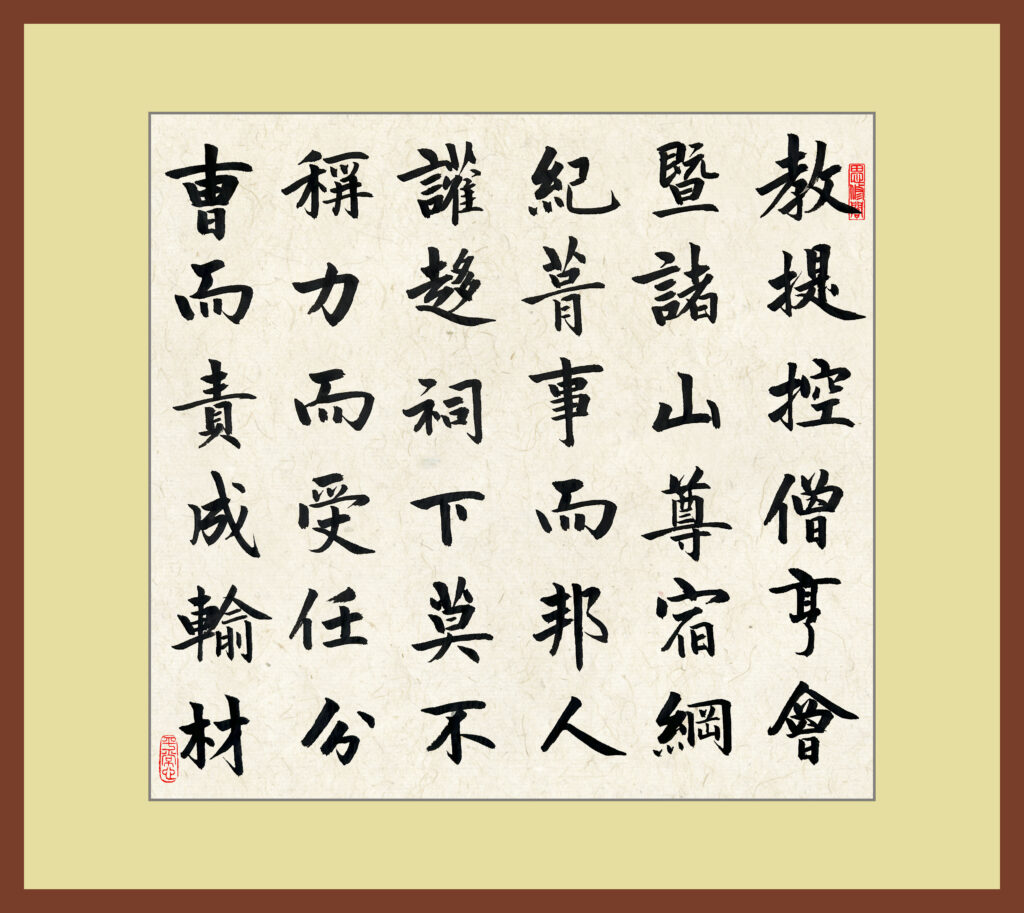 教提控僧亨會
暨諸山尊宿綱
紀事而邦人
讙趍祠下莫不
稱力而受任分
曹而責成輸材
平常心